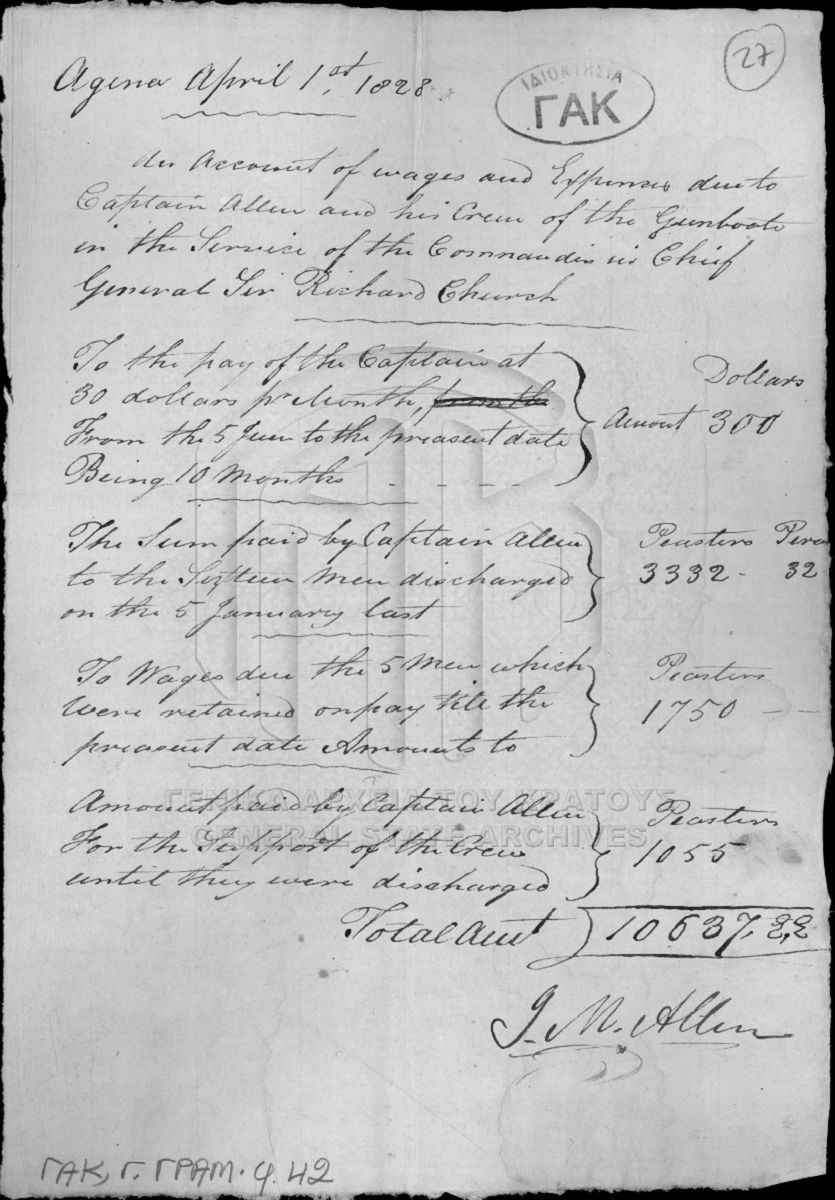 27
ΙΔΙΟΚΤΗΣΙΑ
ΓΑΚ
Agina April 1st, 1828
An Account of wages and Expenses due to
Captain Allen and his Crew of the Gunboate
in the Service of the Commandin in Chief
General Sir Richard Church
To the pay of the Captain at
30 dollars pr Month,
From the 5 June to the preasent date
Being 10 Months - - - -
Dollars
Amount 300
The Sum paid by Captain Allen
to the Sixteen Men discharged
on the 5 January last
Peasters
3332 - 32
To Wages due the 5 Men which
Were retained on pay till the
preasent date Amounts to
Peasters
1750 - -
Amount paid by Captain Allen
For the Support of the Crew
until they were discharged
Peasters
1055
Total Amt 10637,
J. M. Allen
ΓΕΝΙΚΑ ΑΡΧΕΙΑ ΤΟΥ ΚΡΑΤΟΥΣ
GENERAL STATE ARCHIVES
ΓΑΚ, Γ. ΓΡΑΜ. φ. 42